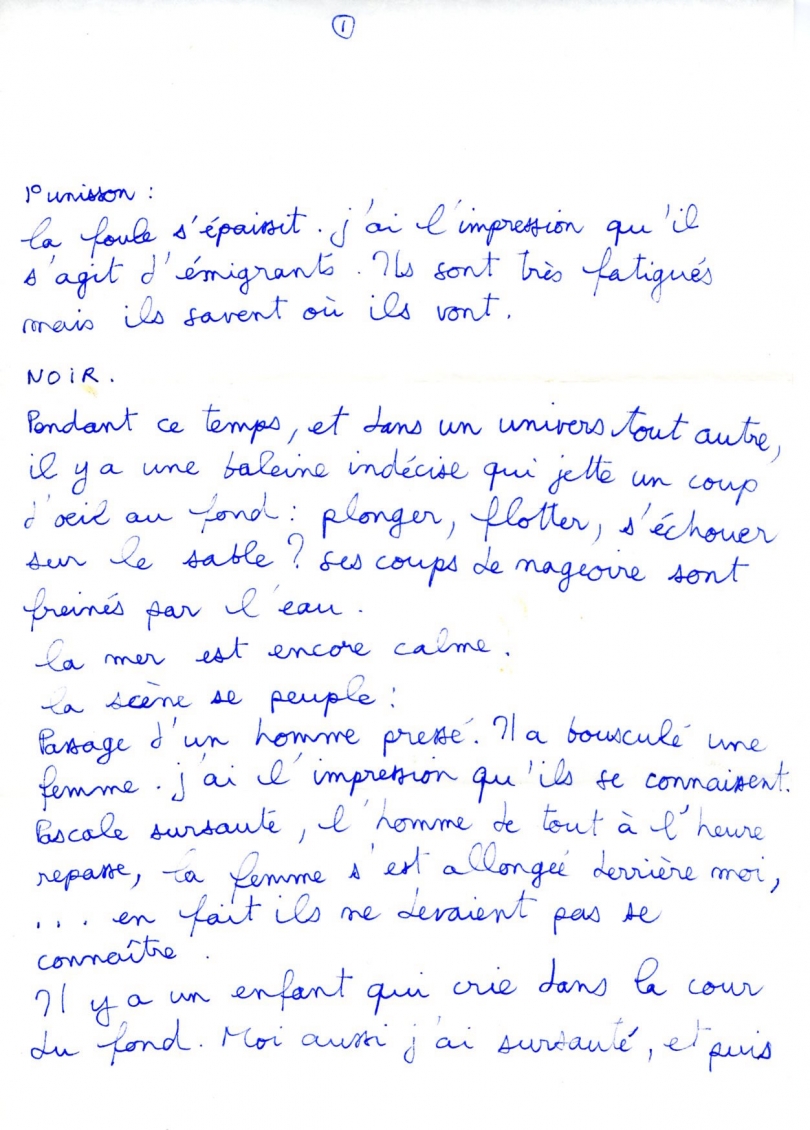 1
1° unisson :
la foule s'épaissit. j'ai l'impression qu'il
s'agit d'émigrants. Ils sont très fatigués
mais ils savent où ils vont.
NOIR.
Pendant ce temps, et dans un univers tout autre,
il y a une baleine indécise qui jette un coup
d'oeil au fond : plonger, flotter, s'échouer
sur le sable ? ses coups de nageoire sont
freinés par l'eau.
la mer est encore calme.
la scène se peuple :
Passage d'un homme pressé. Il a bousculé une
femme. j'ai l'impression qu'ils se connaissent.
Pascale sursaute, l'homme de tout à l'heure
repasse, la femme s'est allongée derrière moi,
... en fait ils ne devaient pas se
connaître.
Il y a un enfant qui crie dans la cour
du fond. Moi aussi j'ai sursauté, et puis